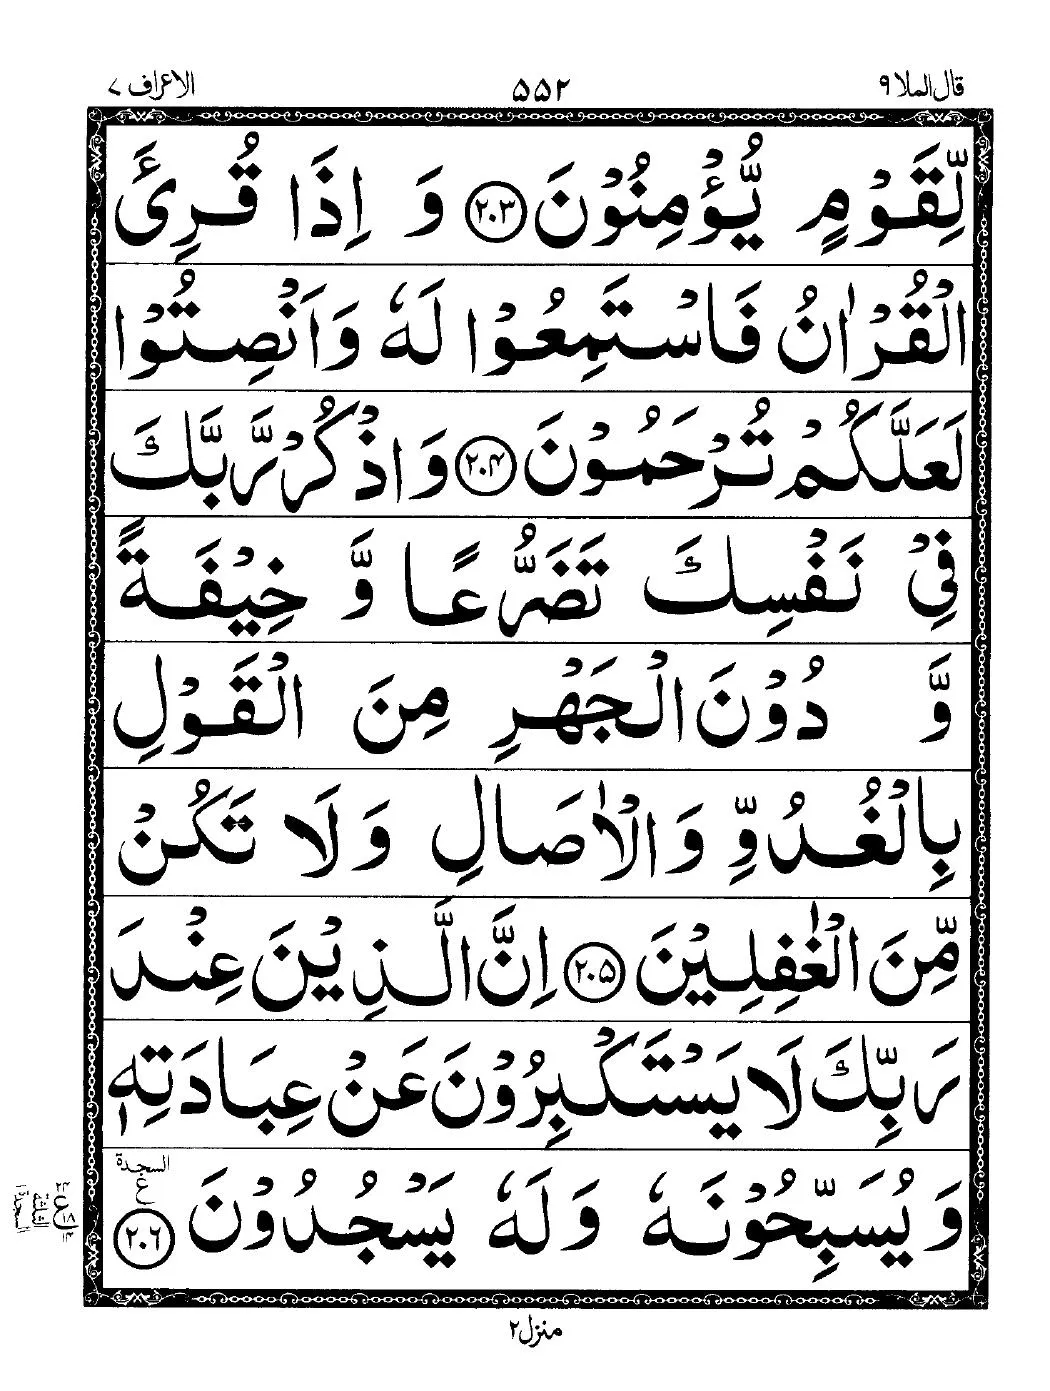 قال الملا ٩ ۵۵۲ الاعراف ٧
لِّقَوْمٍ يُّؤْمِنُوْنَ ۲۰۳ وَ اِذَا قُرِئَ
الْقُرْاٰنُ فَاسْتَمِعُوْا لَهٗ وَاَنْصِتُوْا
لَعَلَّكُمْ تُرْحَمُوْنَ ۲۰۴ وَاذْكُرْ رَّبَّكَ
فِيْ نَفْسِكَ تَضَرُّعًا وَّ خِيْفَةً
وَّ دُوْنَ الْجَهْرِ مِنَ الْقَوْلِ
بِالْغُدُوِّ وَالْاٰصَالِ وَلَا تَكُنْ
مِّنَ الْغٰفِلِيْنَ ۲۰۵ اِنَّ الَّذِيْنَ عِنْدَ
رَبِّكَ لَا يَسْتَكْبِرُوْنَ عَنْ عِبَادَتِهٖ
وَيُسَبِّحُوْنَهٗ وَلَهٗ يَسْجُدُوْنَ ۲۰۶ السجدة ع
منزل ۲